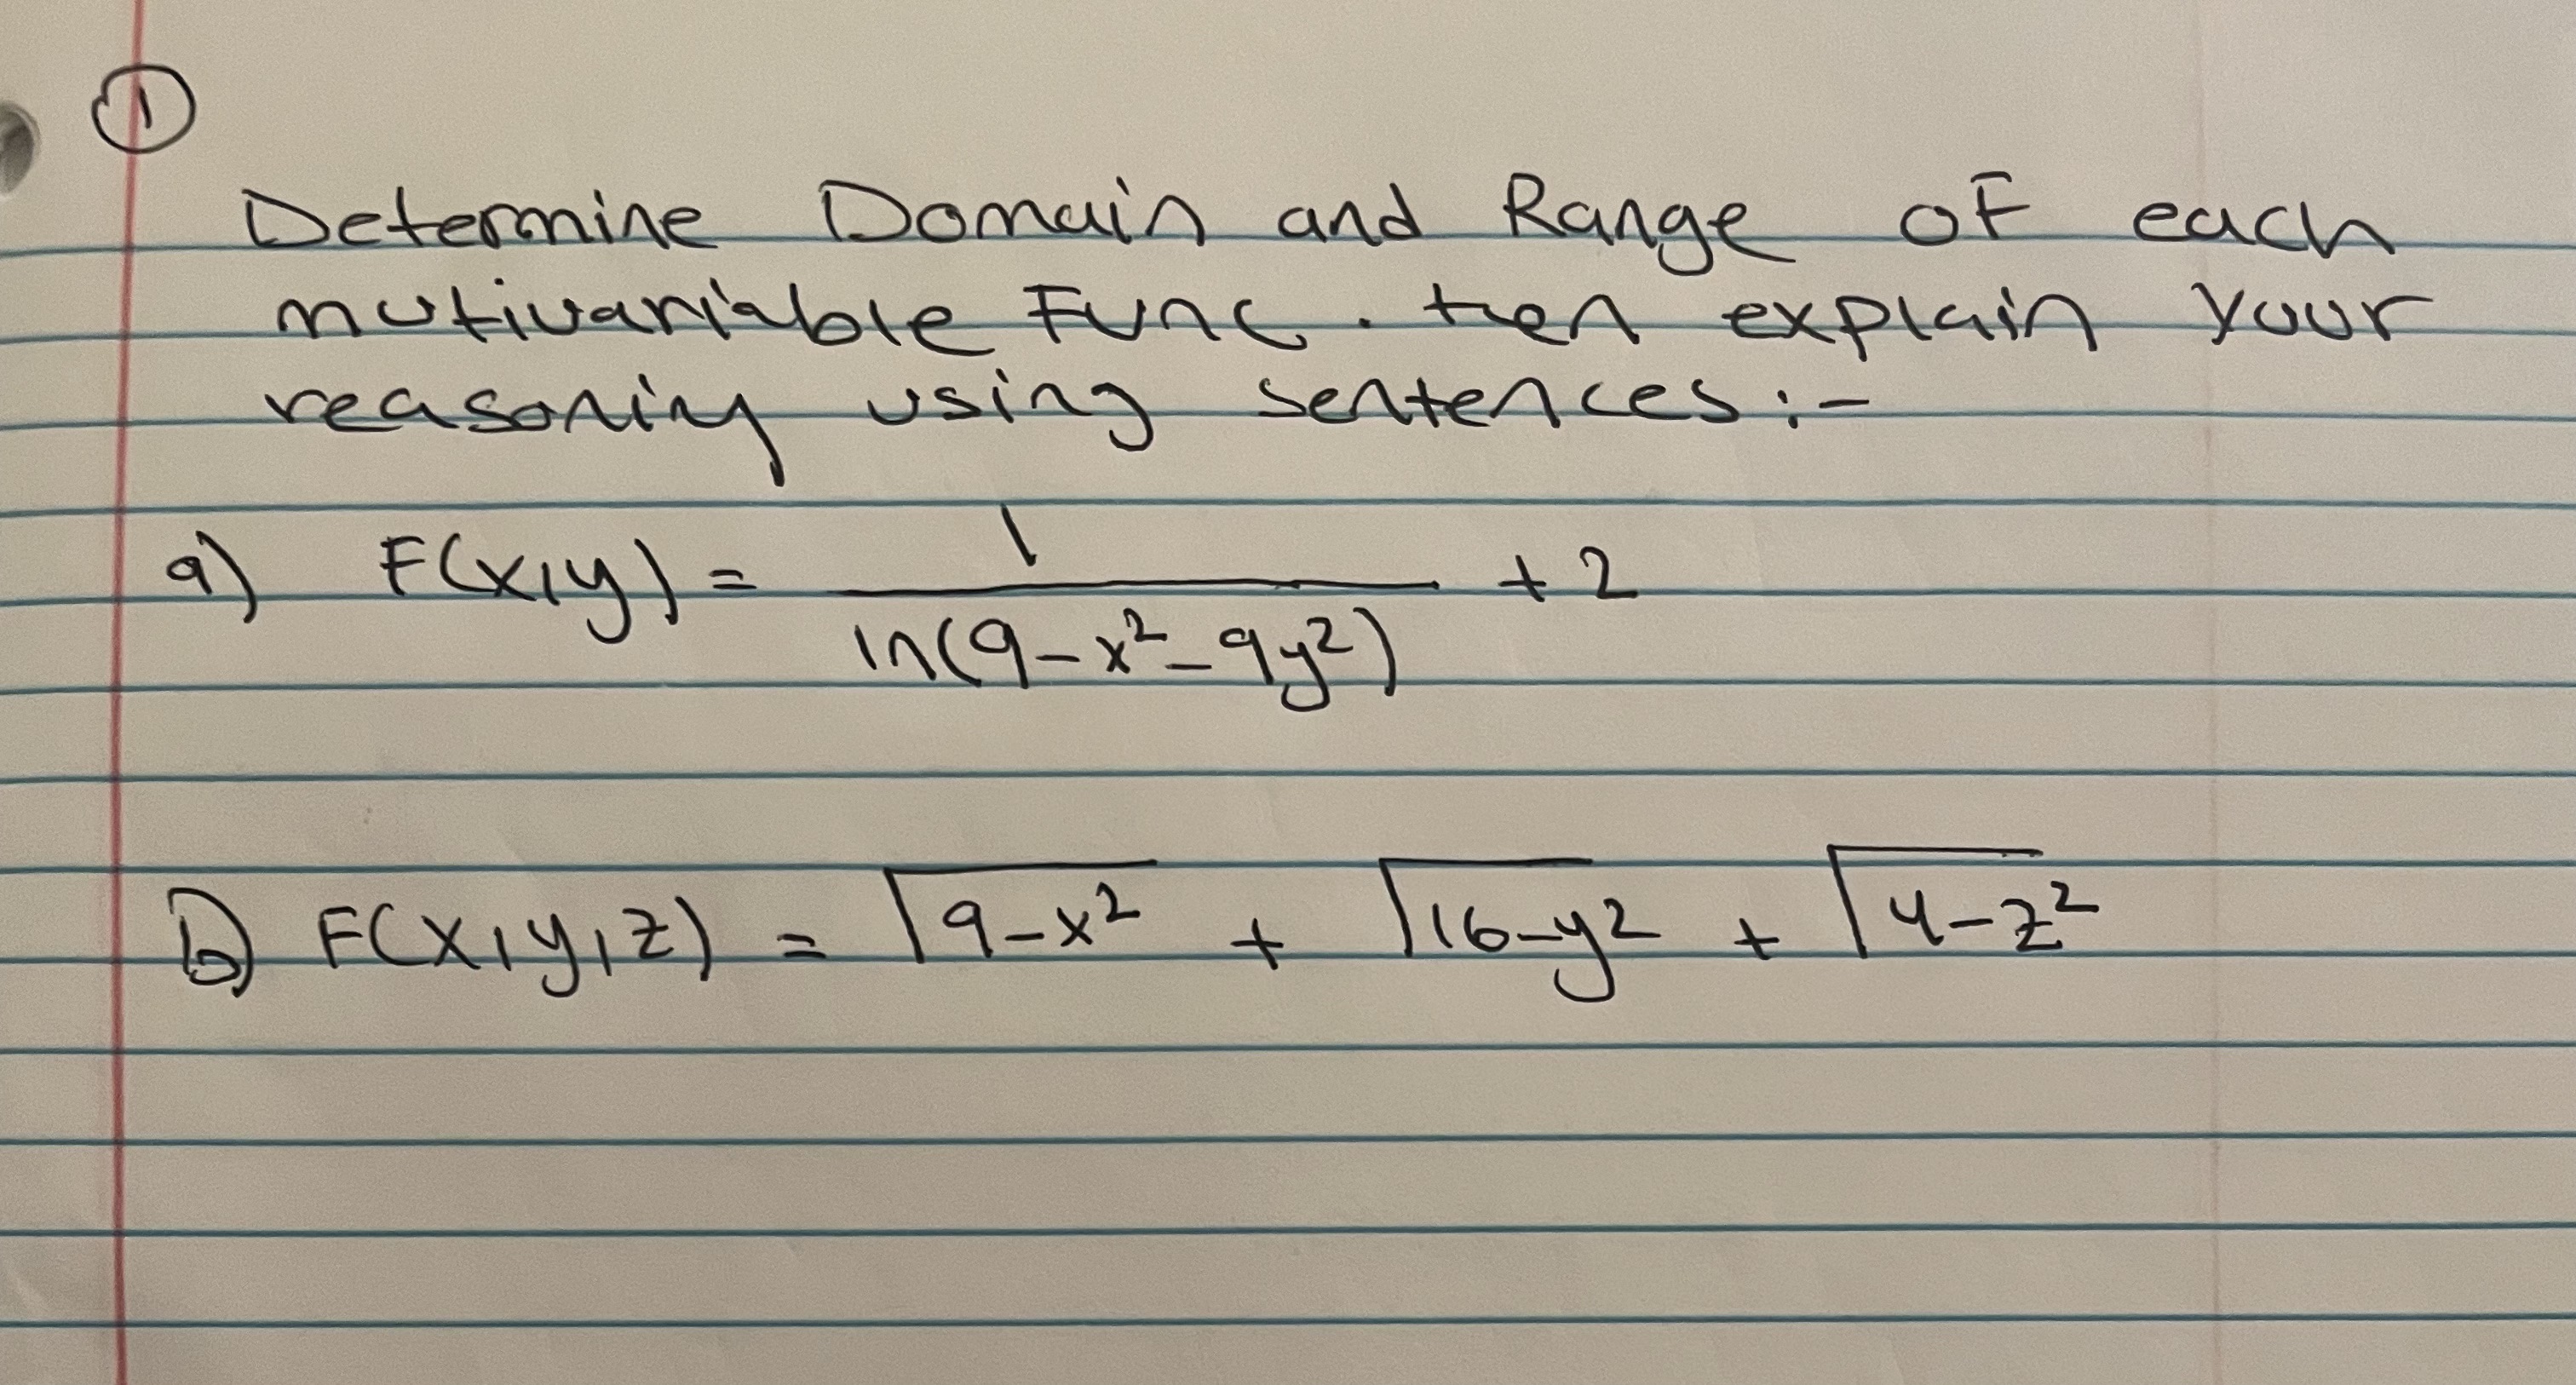 ①
Determine Domain and Range of each
mutivariable Func. then explain your
reasoning using sentences:-
a) F(x,y) = 1 / ln(9-x²-9y²) + 2
b) F(x,y,z) = √9-x² + √16-y² + √4-z²